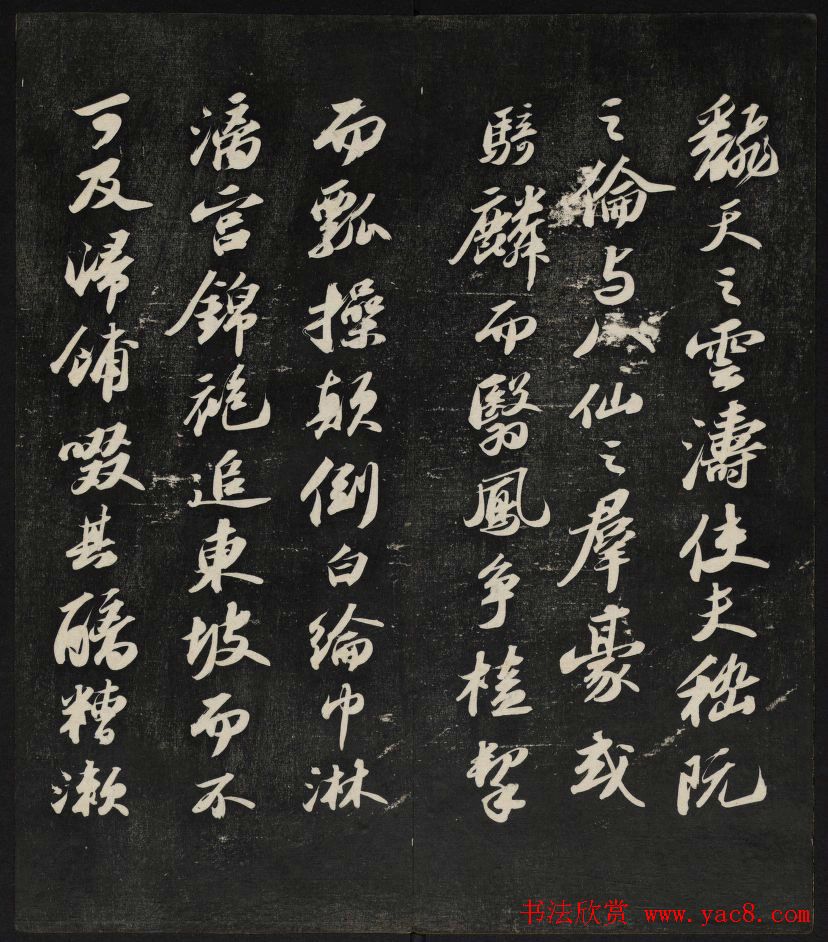 飜天之雲濤使夫嵇阮
之倫与八仙之羣豪或
騎麟而翳鳳争榼挈
而瓢操顛倒白綸巾淋
漓宫錦袍追東坡而不
可及歸餔啜其醨糟漱
书法欣赏 www.yac8.com